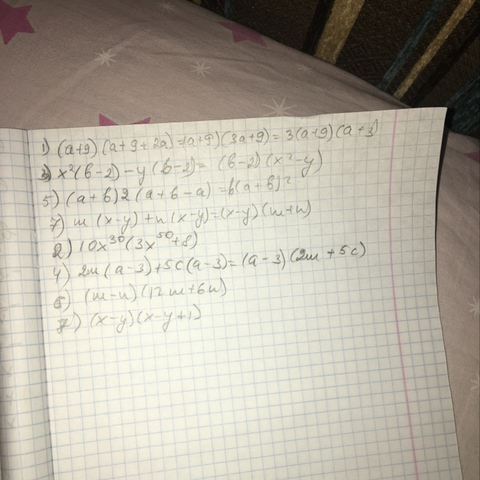 1) (a+9)(a+9+2a)=(a+9)(3a+9)=3(a+9)(a+3)
3) x²(b-2)-y(b-2)=(b-2)(x²-y)
5) (a+b)2(a+b-a)=b(a+b)²
7) m(x-y)+n(x-y)=(x-y)(m+n)
2) 10x³⁰(3x⁵⁰+8)
4) 2m(a-3)+5c(a-3)=(a-3)(2m+5c)
6) (m-n)(12m+6n)
7) (x-y)(x-y+1)